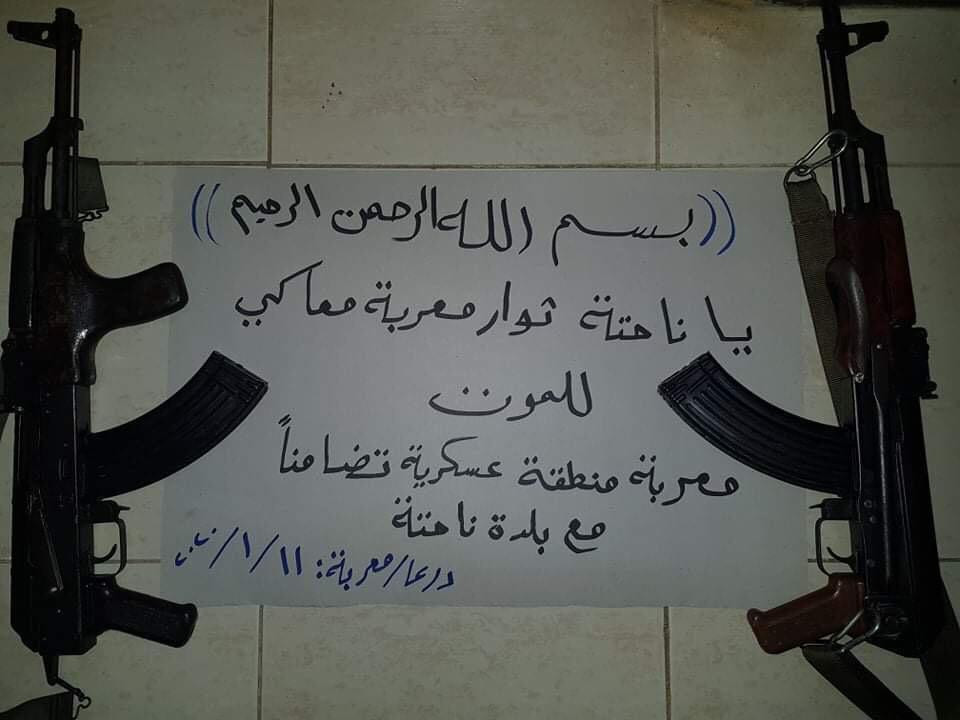 ((بسم الله الرحمن الرحيم))
يا ناحتة ثوار معربة معاكي
للموت
معربة منطقة عسكرية تضامناً
مع بلدة ناحتة
درعا/معربة: ١١/١/٢٠٢٠